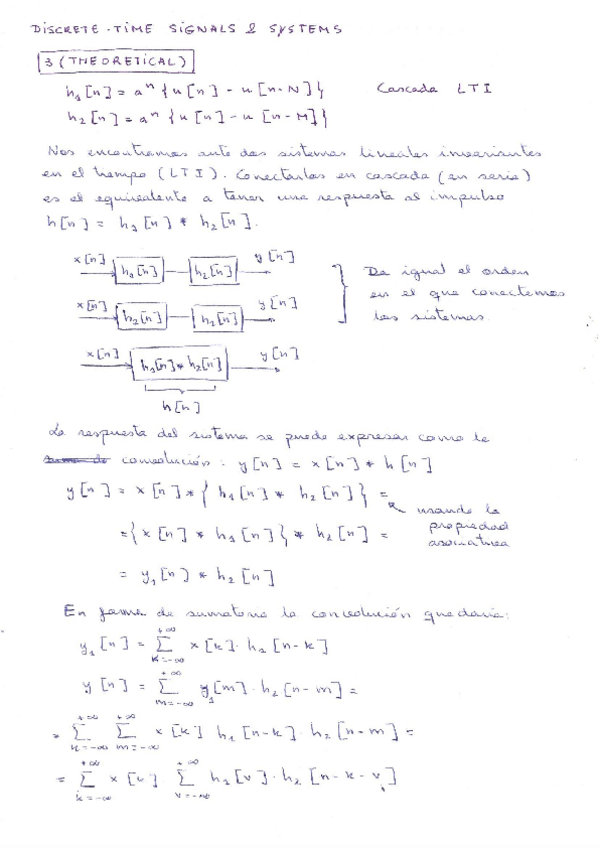 DISCRETE-TIME SIGNALS & SYSTEMS
3 (THEORETICAL)
h₁[n] = aⁿ {u[n] - u[n-N]} Cascada LTI
h₂[n] = aⁿ {u[n] - u[n-M]}
Nos encontramos ante dos sistemas lineales invariantes
en el tiempo (LTI). Conectarlos en cascada (en serie)
es el equivalente a tener una respuesta al impulso
h[n] = h₁[n] * h₂[n].
x[n] h₁[n] h₂[n] y[n]
x[n] h₂[n] h₁[n] y[n]
x[n] h₁[n] * h₂[n] y[n]
h[n]
Da igual el orden
en el que conectemos
los sistemas.
La respuesta del sistema se puede expresar como la
convolución: y[n] = x[n] * h[n]
y[n] = x[n] * {h₁[n] * h₂[n]} =
= {x[n] * h₁[n]} * h₂[n] =
usando la
propiedad
asociativa
= y₁[n] * h₂[n]
En forma de sumatorio la convolución quedaría:
y₁[n] = Σ_{k=-∞}^{+∞} x[k]· h₁[n-k]
y[n] = Σ_{m=-∞}^{+∞} y₁[m]· h₂[n-m] =
= Σ_{k=-∞}^{+∞} Σ_{m=-∞}^{+∞} x[k] h₁[n-k]· h₂[n-m] =
= Σ_{k=-∞}^{+∞} x[k] Σ_{v=-∞}^{+∞} h₁[v]· h₂[n-k-v]